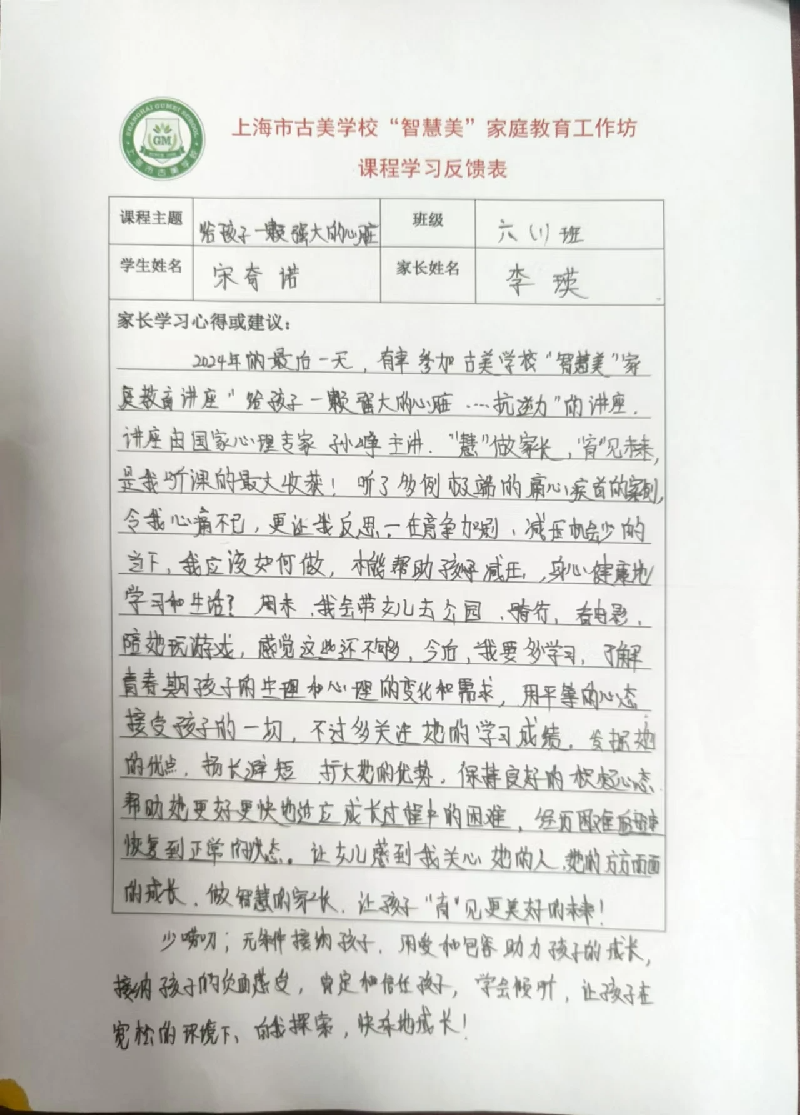 SHANGHAI GUMEI SCHOOL
GM
上海市古美学校
上海市古美学校“智慧美”家庭教育工作坊
课程学习反馈表
课程主题 给孩子一颗强大的心脏 班级 六(1)班
学生姓名 宋奇诺 家长姓名 李瑛
家长学习心得或建议：
2024年的最后一天，有幸参加古美学校“智慧美”家
庭教育讲座“给孩子一颗强大的心脏……抗逆力”的讲座.
讲座由国家心理专家 孙峥主讲.“慧”做家长，“育”见未来,
是我听课的最大收获！听了多例极端的痛心疾首的案例,
令我心痛不已，更让我反思一在竞争加剧、减压机会少的
当下，我应该如何做，才能帮助孩子减压，身心健康地
学习和生活？周末，我会带女儿去公园、骑行，看电影，
陪她玩游戏，感觉这些还不够，今后，我要多学习，了解
青春期孩子的生理和心理的变化和需求，用平等的心态
接受孩子的一切，不过多关注她的学习成绩。发掘她
的优点，扬长避短 扩大她的优势，保持良好的积极心态
帮助她更好更快地适应成长过程中的困难，经历困难后
恢复到正常的状态。让女儿感到我关心她的人，她的方方面面
的成长，做智慧的家长，让孩子“育”见更美好的未来！
少唠叨；无条件接纳孩子.用爱和包容助力孩子的成长，
接纳孩子的负面感受，肯定和信任孩子，学会倾听，让孩子在
宽松的环境下、自我探索，快乐地成长！